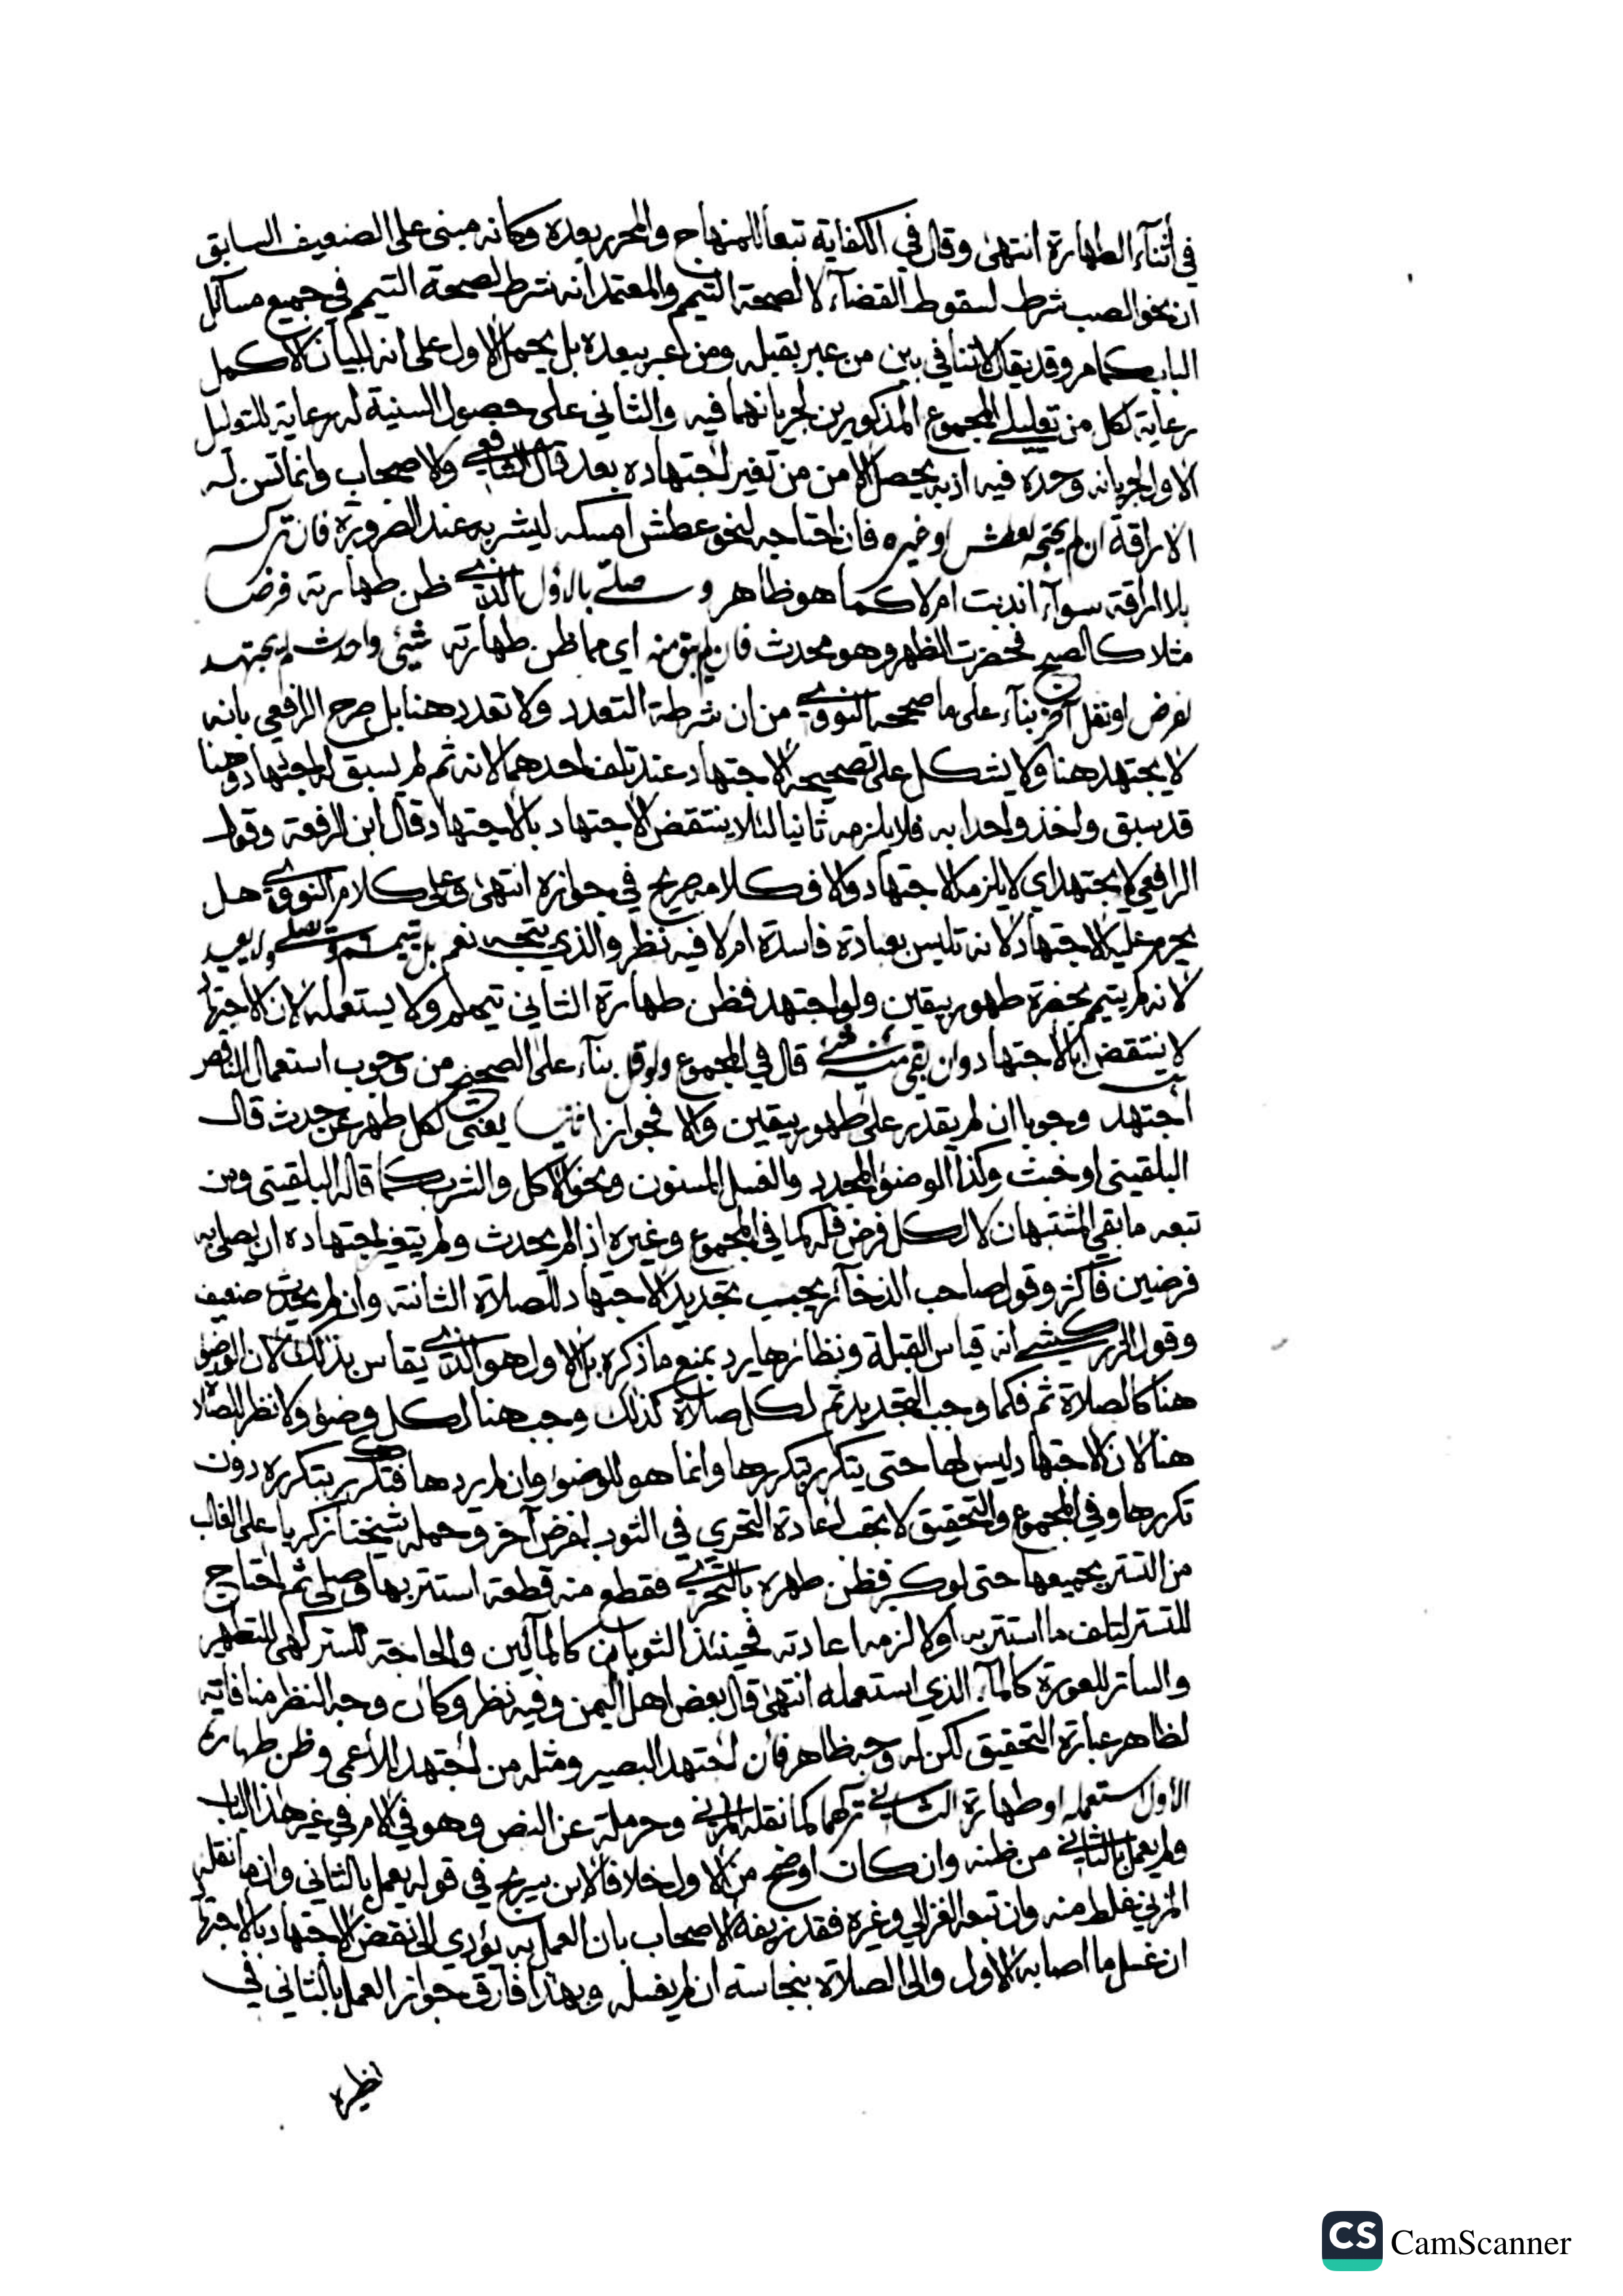 في أثنآء الطهارة انتهى وقال في الكفاية تبعا للمنهاج والمحرر بعده وكانه مبنى على الضعيف السابق
ان نحو الصب شرط لسقوط القضآء لا لصحة التيمم والمعتمد انه شرط لصحة التيمم في جميع مسآئل
الباب كما مر وقد يقال لا تنافي بين من عبر بقبله ومن عبر ببعده بل يحمل الاول على انه لبيان الاكمل
رعاية لكل من تعليلي المجموع المذكورين لجريانهما فيه والثاني على حصول السنية له رعاية للتعليل
الاول لجريانه وحده فيه اذ به يحصل الامن من تغير اجتهاده بعد قال الشافعي والاصحاب وانما تسن له
الاراقة ان لم يحتجه لعطش او غيره فان احتاجه لنحو عطش امسكه ليشربه عند الضرورة فان تركه
بلا اراقة سوآء اندبت ام لا كما هو ظاهر وصلى بالاول الذي ظن طهارته فرضا
مثلا كالصبح فحضرت الظهر وهو محدث فان لم يبق منه اي مما ظن طهارته شئ واحدث لم يجتهد
لفرض او نفل آخر بنآء على ما صححه النووي من ان شرطه التعدد ولا تعدد هنا بل صرح الرافعي بانه
لا يجتهد هنا ولا يشكل على تصحيحه الاجتهاد عند تلف احدهما لانه ثم لم يسبق له اجتهاد وهنا
قد سبق واخذ واحدا به فلا يلزمه ثانيا لئلا ينتقض الاجتهاد بالاجتهاد قال ابن الرفعة وقول
الرافعي لا يجتهد اي لا يلزمه الاجتهاد والا فكلامه صريح في جوازه انتهى وعلى كلام النووي هل
يحرم عليه الاجتهاد لانه تلبس بعبادة فاسدة ام لا فيه نظر والذي يتجه نعم بل تيمم وصلى ولم يعيد
لانه لم يتيمم بحضرة طهور بيقين ولو اجتهد فظن طهارة الثاني تيمم ولا يستعمله لان الاجتهاد
لا ينتقض بالاجتهاد وان بقي منه شئ قال في المجموع ولو قل بنآء على الصحيح من وجوب استعمال الناقص
اجتهد وجوبا ان لم يقدر على طهور بيقين والا فجوازا ثانيا يعنى لكل طهر عن حدث قال
البلقيني او خبث وكذا الوضؤ المجدد والغسل المسنون ونحو الاكل والشرب كما قاله البلقيني ومن
تبعه ما بقي المشتبهان لا لكل فرض فله كما في المجموع وغيره اذا لم يحدث ولم يتغير اجتهاده ان يصلى به
فرضين فاكثر وقول صاحب الذخآئر يجب تجديد الاجتهاد للصلاة الثانية وان لم يحدث ضعيف
وقول الزركشي انه قياس القبلة ونظائرها يرد بمنع ما ذكره بل الاول هو الذي يقاس بذلك لان الوضؤ
هنا كالصلاة ثم فكما وجب التجديد ثم لكل صلاة كذلك وجب هنا لكل وضؤ ولا نظر للصلاة
هنا لان الاجتهاد ليس لها حتى يتكرر بتكررها وانما هو للوضؤ وان لم يردها فتكرر بتكرره دون
تكررها وفي المجموع والتحقيق لا يجب اعادة التحري في الثوب لفرض آخر وحمله شيخنا زكريا على الغالب
من التستر بجميعها حتى لو كبر فظن طهره بالتحري فقطع منه قطعة استتر بها وصلى ثم احتاج
للتستر لتلف ما استتر به اولا لزمه اعادته فحينئذ الثوبان كالمآئين والحاجة للستر كهى للتطهير
والساتر للعورة كالمآء الذي استعمله انتهى قال بعض اهل اليمن وفيه نظر وكان وجه النظر منافاته
لظاهر عبارة التحقيق لكن له وجه ظاهر فان اجتهد البصير ومثله من اجتهد له الاعمى وظن طهارة
الأول استعمله او طهارة الثاني تركهما كما نقله المزني وحرملة عن النص وهو في الام في غير هذا الباب
ولم يعمل بالثاني من ظنه وان كان اوضح من الاول خلافا لابن سريج في قوله يعمل بالثاني وان ما نقله
المزني غلط منه وان تبعه الغزالي وغيره فقد زيفه الاصحاب بان العمل به يؤدي الى نقض الاجتهاد بالاجتهاد
ان غسل ما اصابه الاول والى الصلاة بنجاسته ان لم يغسله وبهذا فارق جواز العمل بالثاني في
نظيره
CS CamScanner